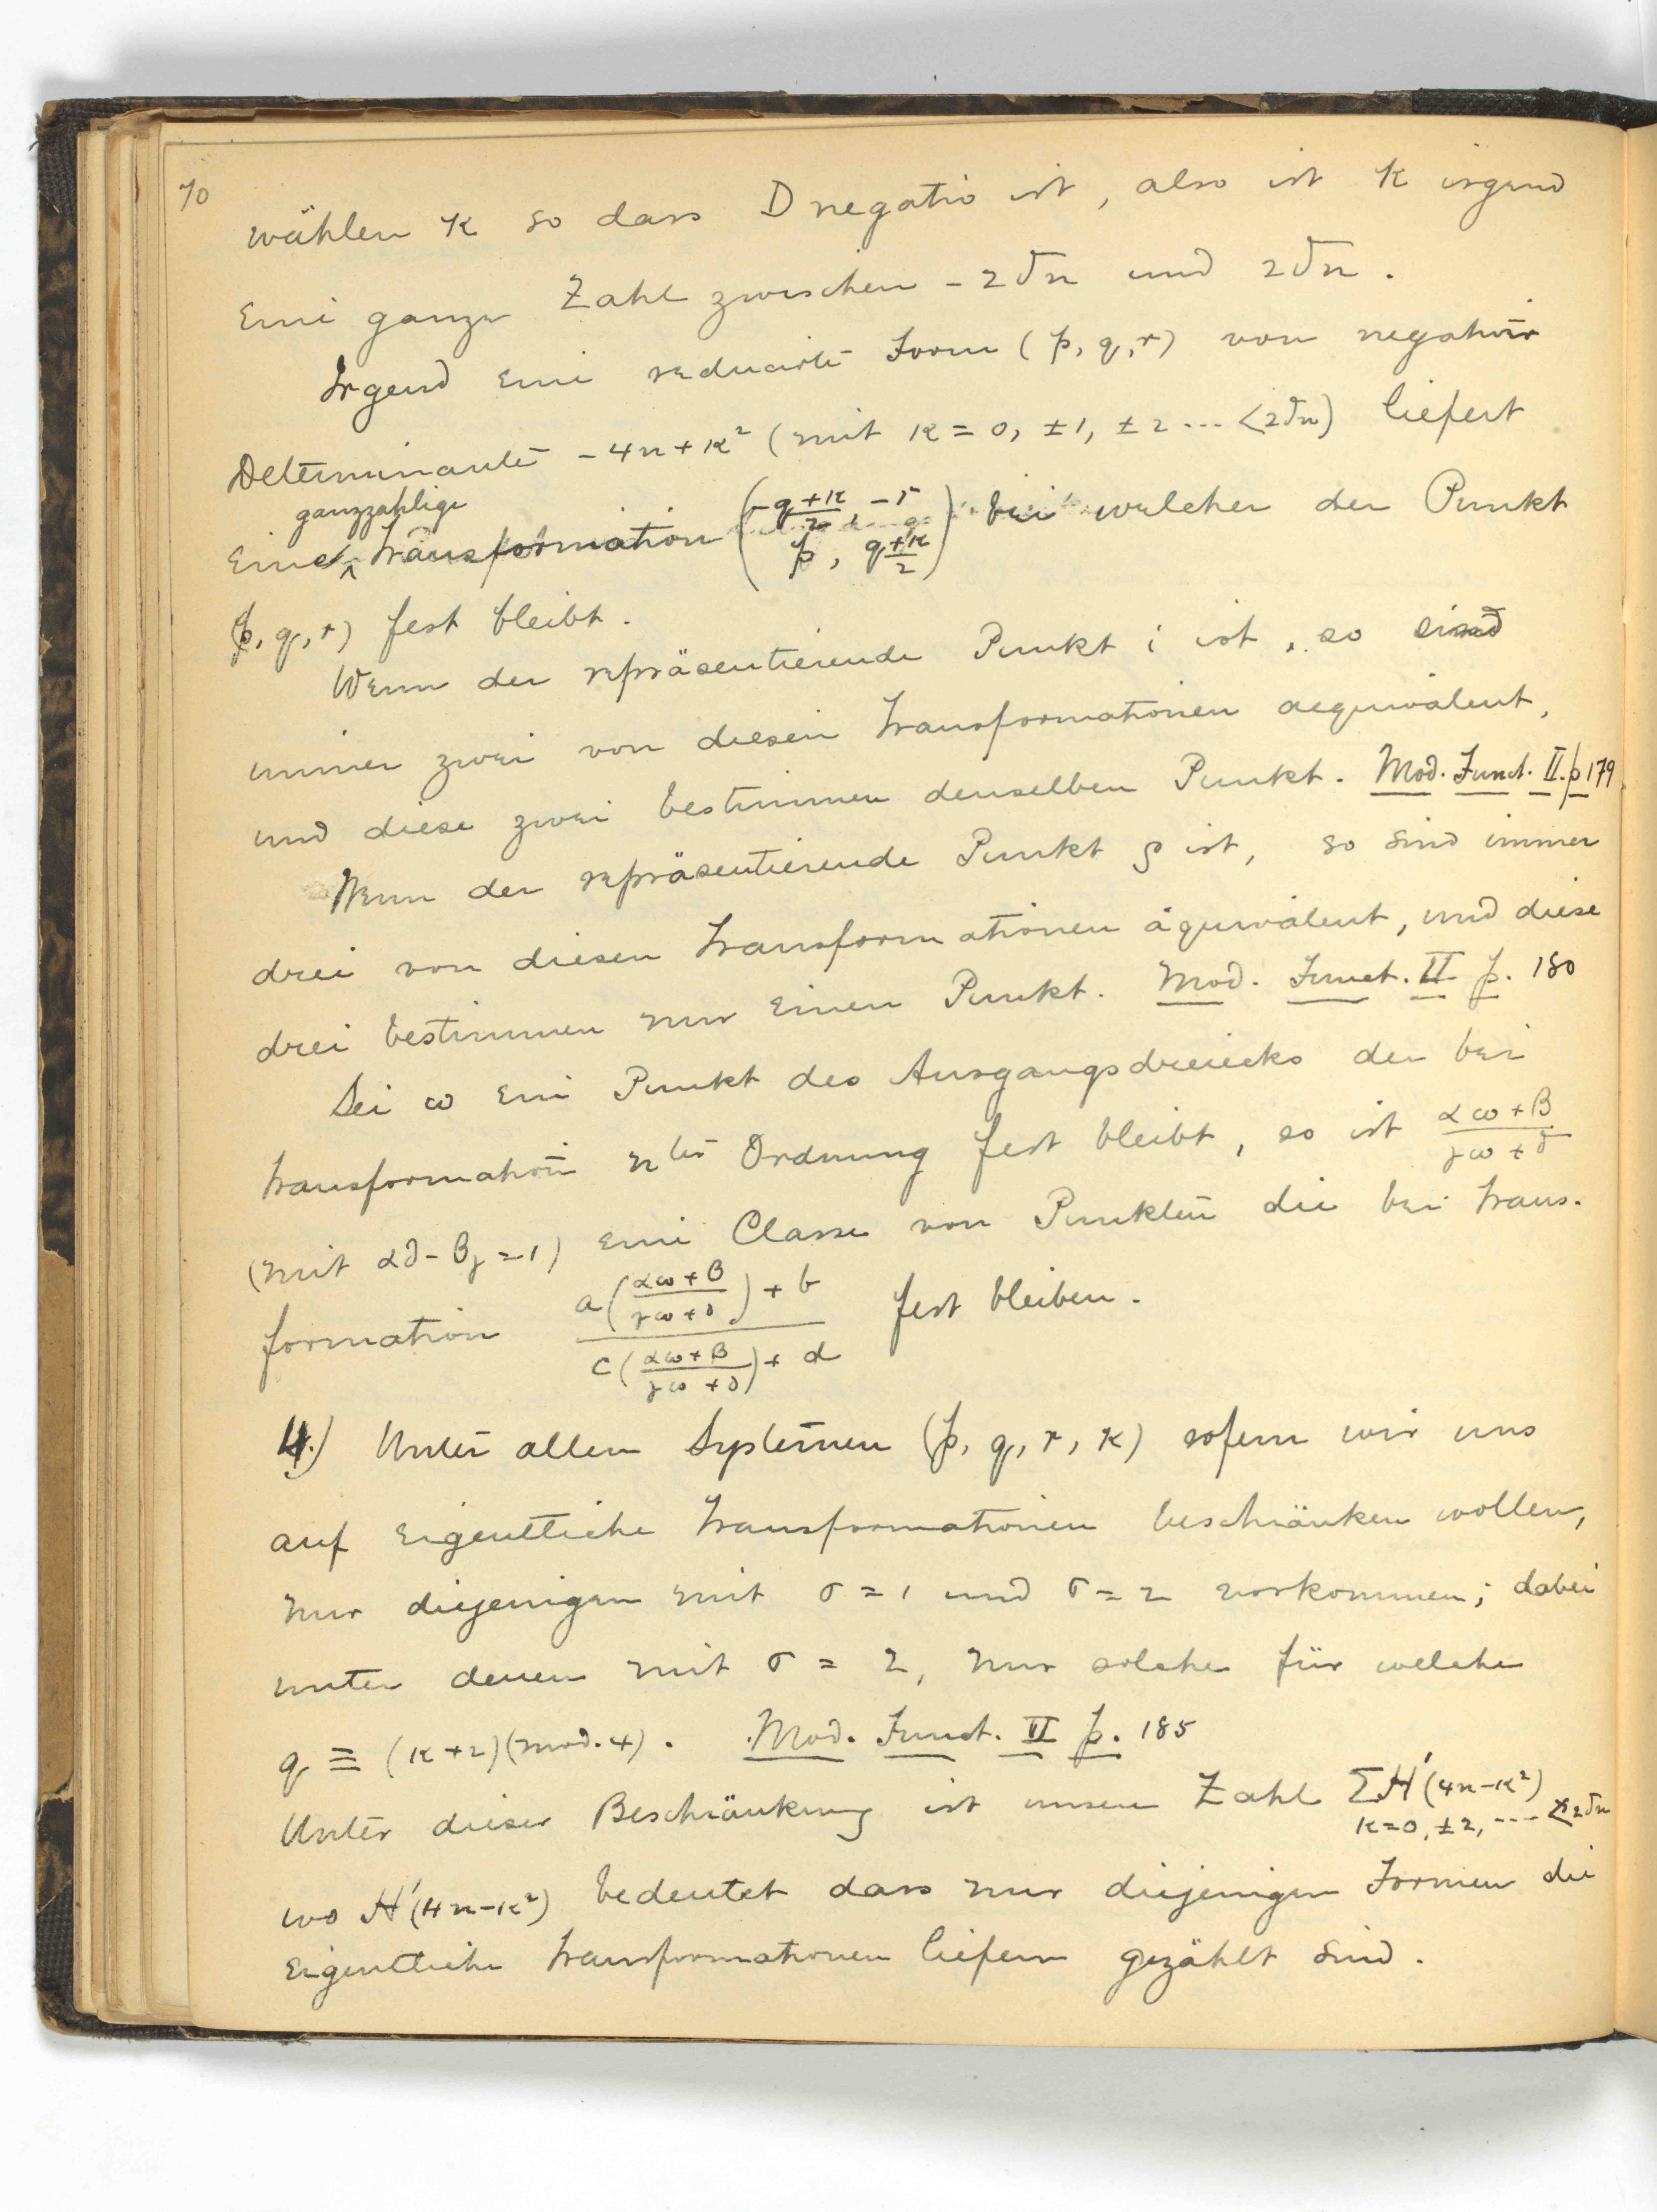 70
wählen κ so dass D negativ ist, also ist κ irgend
eine ganze Zahl zwischen -2√n und 2√n.
Irgend eine reducirte Form (p, q, r) von negativer
Determinante -4n+κ² (mit κ = 0, ±1, ±2 ... <2√n) liefert
ganzzahlige
eine Transformation ( (-q+κ)/2, -r ; p, (q+κ)/2 ) bei welcher der Punkt
(p, q, r) fest bleibt.
Wenn der repräsentierende Punkt i ist, so sind
immer zwei von diesen Transformationen aequivalent,
und diese zwei bestimmen denselben Punkt. Mod. Funct. II. p 179
Wenn der repräsentierende Punkt ρ ist, so sind immer
drei von diesen Transformationen äquivalent, und diese
drei bestimmen nur einen Punkt. Mod. Funct. II p. 180
Sei ω ein Punkt des Ausgangsdreiecks der bei
Transformation nter Ordnung fest bleibt, so ist (αω+β)/(γω+δ)
(mit αδ-βγ=1) eine Classe von Punkten die bei Trans-
formation (a((αω+β)/(γω+δ))+b)/(c((αω+β)/(γω+δ))+d) fest bleiben.
4.) Unter allen Systemen (p, q, r, κ) sofern wir uns
auf eigentliche Transformationen beschränken wollen,
nur diejenigen mit σ=1 und σ=2 vorkommen; dabei
unter denen mit σ = 2, nur solche für welche
q ≡ (κ+2)(mod. 4). Mod. Funct. II p. 185
Unter dieser Beschränkung ist unsere Zahl ΣH'(4n-κ²)
κ=0, ±2, ... <2√n
wo H'(4n-κ²) bedeutet dass nur diejenigen Formen die
eigentliche Transformationen liefern gezählt sind.